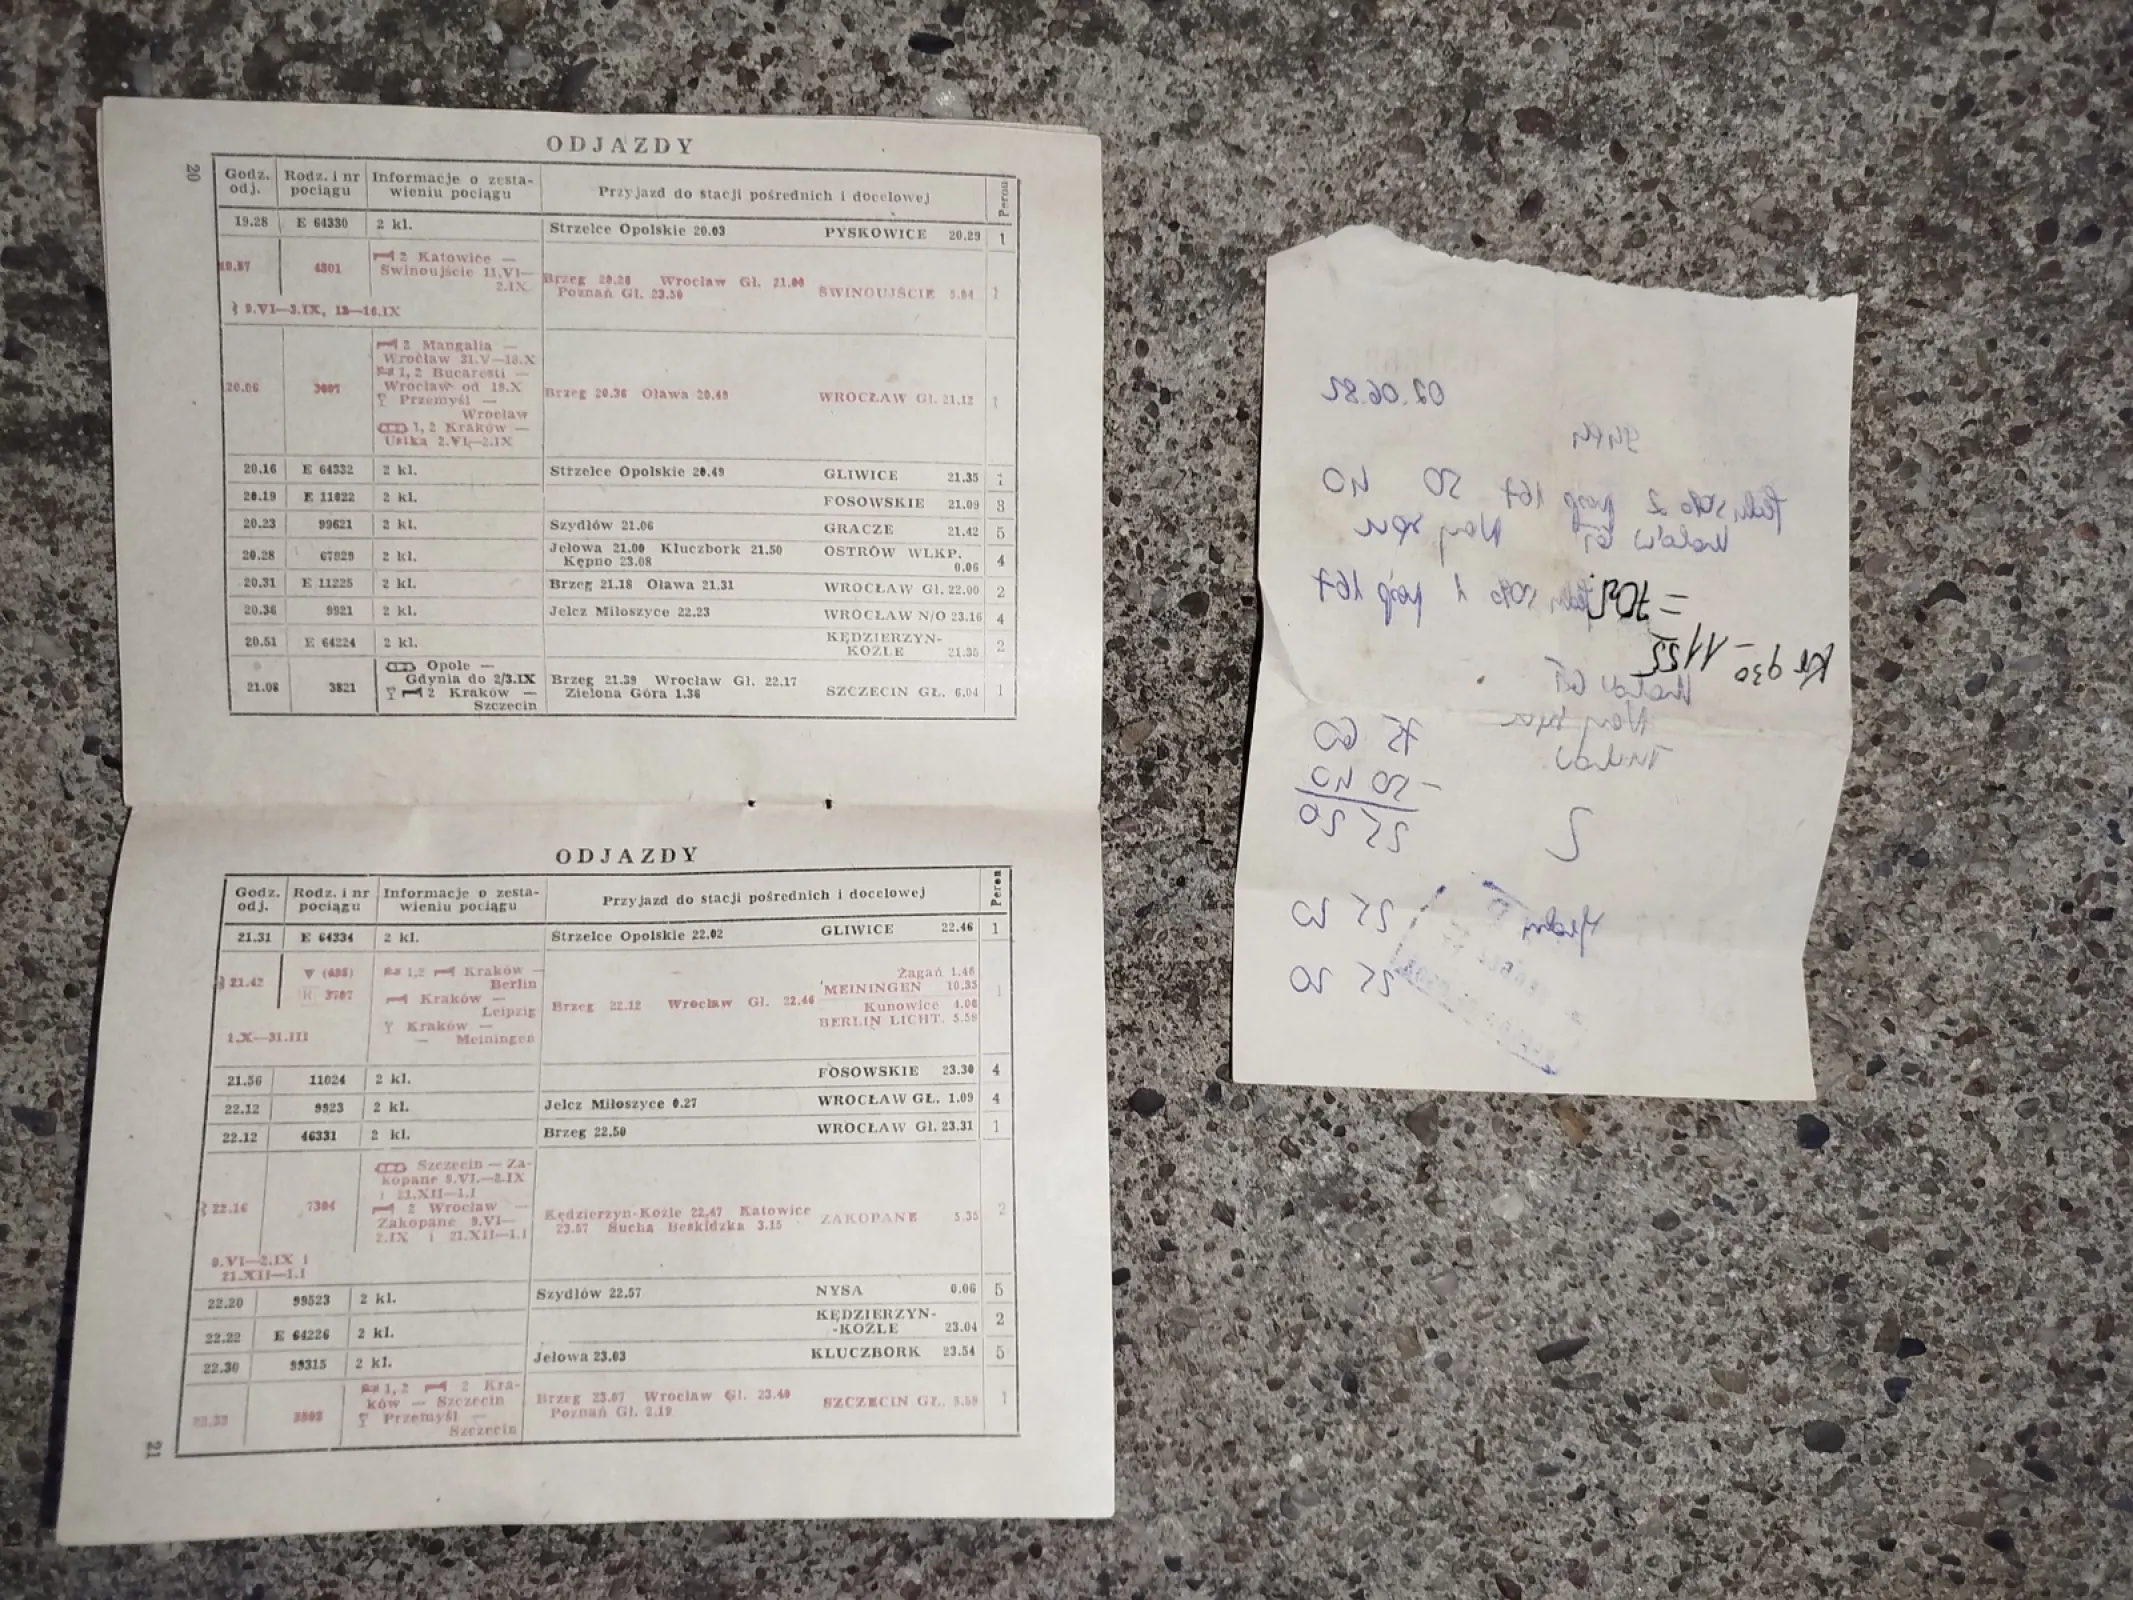 ODJAZDY
20
Godz. odj. Rodz. i nr pociągu Informacje o zesta- wieniu pociągu Przyjazd do stacji pośrednich i docelowej Peron
19.28 E 64330 2 kl. Strzelce Opolskie 20.03 PYSKOWICE 20.29 1
19.57 4801 2 Katowice — Świnoujście 11.VI— 2.IX Brzeg 20.28 Wrocław Gł. 21.00 Poznań Gł. 23.50 ŚWINOUJŚCIE 5.04 1
9.VI—3.IX, 13—16.IX
20.06 3607 2 Mangalia — Wrocław 31.V—18.X 1, 2 Bucaresti — Wrocław od 19.X Przemyśl — Wrocław 1, 2 Kraków — Ustka 2.VI—2.IX Brzeg 20.36 Oława 20.49 WROCŁAW Gł. 21.12 1
20.16 E 64332 2 kl. Strzelce Opolskie 20.49 GLIWICE 21.35 1
20.19 E 11022 2 kl. FOSOWSKIE 21.09 3
20.23 99621 2 kl. Szydłów 21.06 GRACZE 21.42 5
20.28 67929 2 kl. Jełowa 21.00 Kluczbork 21.50 Kępno 23.08 OSTRÓW WLKP. 0.06 4
20.31 E 11225 2 kl. Brzeg 21.18 Oława 21.31 WROCŁAW Gł. 22.00 2
20.36 9921 2 kl. Jelcz Miłoszyce 22.23 WROCŁAW N/O 23.16 4
20.51 E 64224 2 kl. KĘDZIERZYN- KOŹLE 21.35 2
21.08 3821 Opole — Gdynia do 2/3.IX 2 Kraków — Szczecin Brzeg 21.39 Wrocław Gł. 22.17 Zielona Góra 1.36 SZCZECIN GŁ. 6.04 1
ODJAZDY
Godz. odj. Rodz. i nr pociągu Informacje o zesta- wieniu pociągu Przyjazd do stacji pośrednich i docelowej Peron
21.31 E 64334 2 kl. Strzelce Opolskie 22.02 GLIWICE 22.46 1
21.42 R 3707 1,2 Kraków — Berlin Kraków — Leipzig Kraków — Meiningen Brzeg 22.12 Wrocław Gł. 22.46 Żagań 1.46 MEININGEN 10.35 Kunowice 4.06 BERLIN LICHT. 5.59 1
1.X—31.III
21.56 11024 2 kl. FOSOWSKIE 23.30 4
22.12 9923 2 kl. Jelcz Miłoszyce 0.27 WROCŁAW GŁ. 1.09 4
22.12 46331 2 kl. Brzeg 22.50 WROCŁAW Gł. 23.31 1
22.16 7304 Szczecin — Za- kopane 9.VI.—2.IX i 21.XII—1.I 2 Wrocław — Zakopane 9.VI— 2.IX i 21.XII—1.I Kędzierzyn-Koźle 22.47 Katowice 23.57 Sucha Beskidzka 3.15 ZAKOPANE 5.35 2
9.VI—2.IX i 21.XII—1.I
22.20 99523 2 kl. Szydłów 22.57 NYSA 0.06 5
22.22 E 64226 2 kl. KĘDZIERZYN- -KOŹLE 23.04 2
22.30 99315 2 kl. Jełowa 23.03 KLUCZBORK 23.54 5
22.33 3803 1, 2 2 Kra- ków — Szczecin Przemyśl — Szczecin Brzeg 23.07 Wrocław Gł. 23.40 Poznań Gł. 2.19 SZCZECIN GŁ. 5.59 1
21
02.06.82
50 40
167
Kr 930 - 1155
75 60
- 50 40
25 20
25 20
25 20